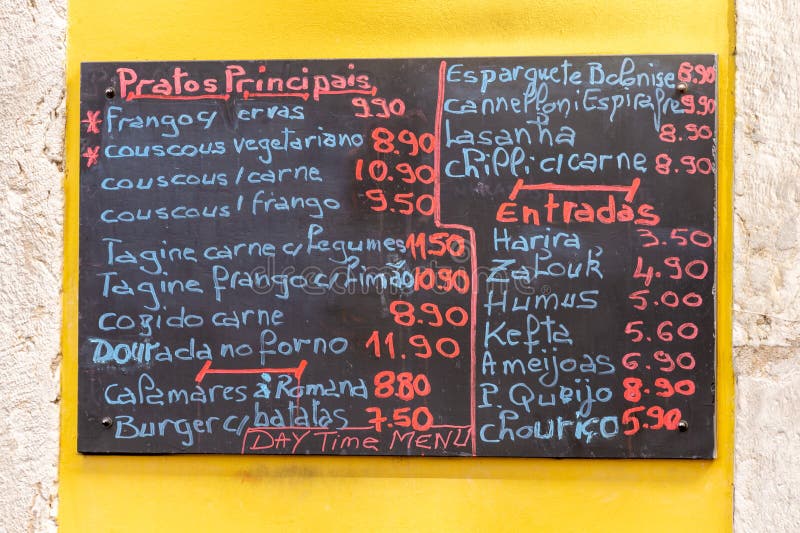 Pratos Principais
* Frango c/ ervas 9.90
* couscous vegetariano 8.90
couscous / carne 10.90
couscous / frango 9.50
Tagine carne c/ legumes 11.50
Tagine frango c/ limão 10.90
cozido carne 8.90
Dourada no forno 11.90
Calamares à Romana 8.80
Burger c/ batatas 7.50
DAY Time MENU
Esparguete Bolonise 8.90
cannelloni Espinafre 9.90
Lasanha 8.90
chilli c/ carne 8.90
Entradas
Harira 3.50
Zalouk 4.90
Humus 5.00
Kefta 5.60
Ameijoas 6.90
P. Queijo 8.90
chouriço 5.90